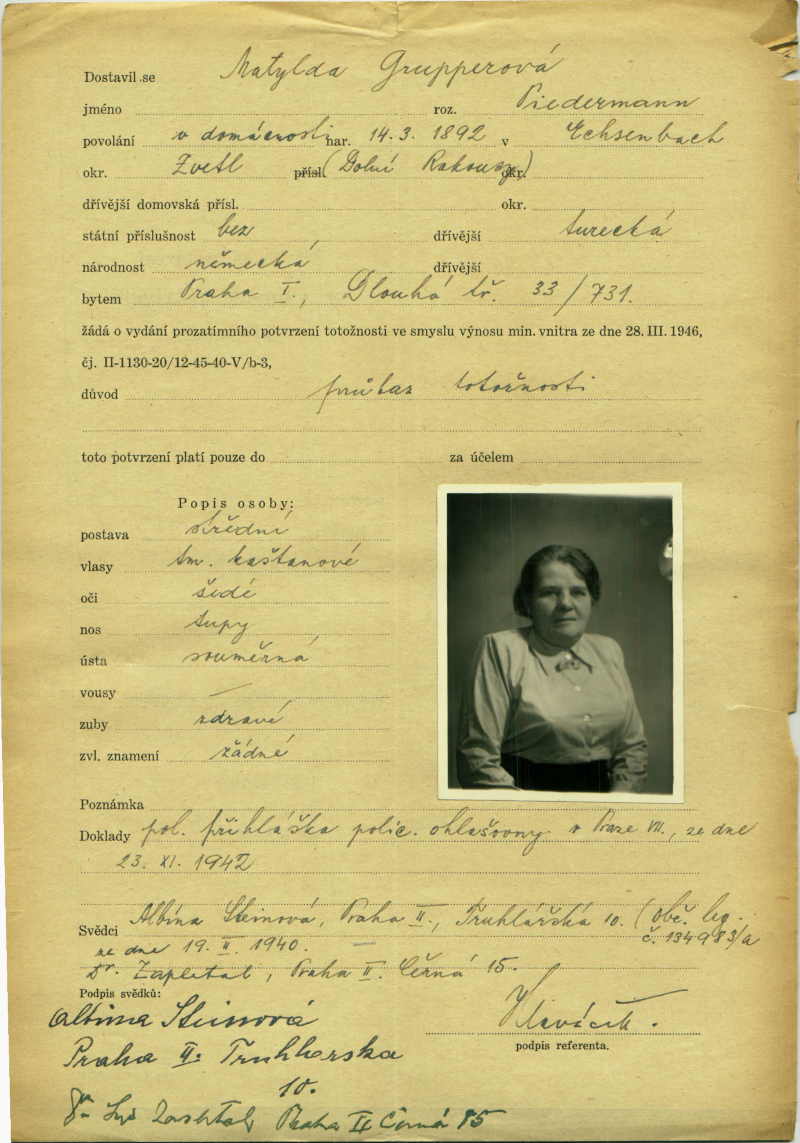 Dostavil se Matylda Grupperová
jméno roz. Piedermann
povolání v domácnosti nar. 14.3. 1892 v Echsenbach
okr. Zvetl přísl. (Dolní Rakousy) okr.
dřívější domovská přísl. okr.
státní příslušnost bez dřívější turecká
národnost německá dřívější
bytem Praha I., Dlouhá tř. 33/731.
žádá o vydání prozatímního potvrzení totožnosti ve smyslu výnosu min. vnitra ze dne 28. III. 1946,
čj. II-1130-20/12-45-40-V/b-3,
důvod průkaz totožnosti
toto potvrzení platí pouze do za účelem
Popis osoby:
postava střední
vlasy tm. kaštanové
oči šedé
nos tupý
ústa souměrná
vousy —
zuby zdravé
zvl. znamení žádné
Poznámka
Doklady pol. přihláška polic. ohlašovny v Praze VII., ze dne
23. XI. 1942
Svědci Albína Steinová, Praha II., Truhlářská 10. (obč. leg.
ze dne 19. II. 1940. — č. 134983/a
Dr. Zapletal, Praha II. Černá 15.
Podpis svědků:
Albina Steinová
Praha II: Truhlarska
10.
Praha II Černá 15
Hlaváček.
podpis referenta.